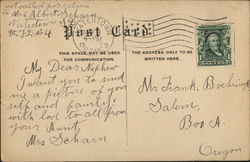 if not called for return
to Mrs Albert Scharn
Watertown
R.F.D. No 4
WATERTOWN
Post Card
THIS SPACE MAY BE USED FOR COMMUNICATION.
THE ADDRESS ONLY TO BE WRITTEN HERE.
My Dear Nephew
I want you to send
me a picture of your
self and family.
with love to all from
your Aunt,
Mrs Scharn
Mr. Frank. Boehringer
Salem,
Box A.
Oregon